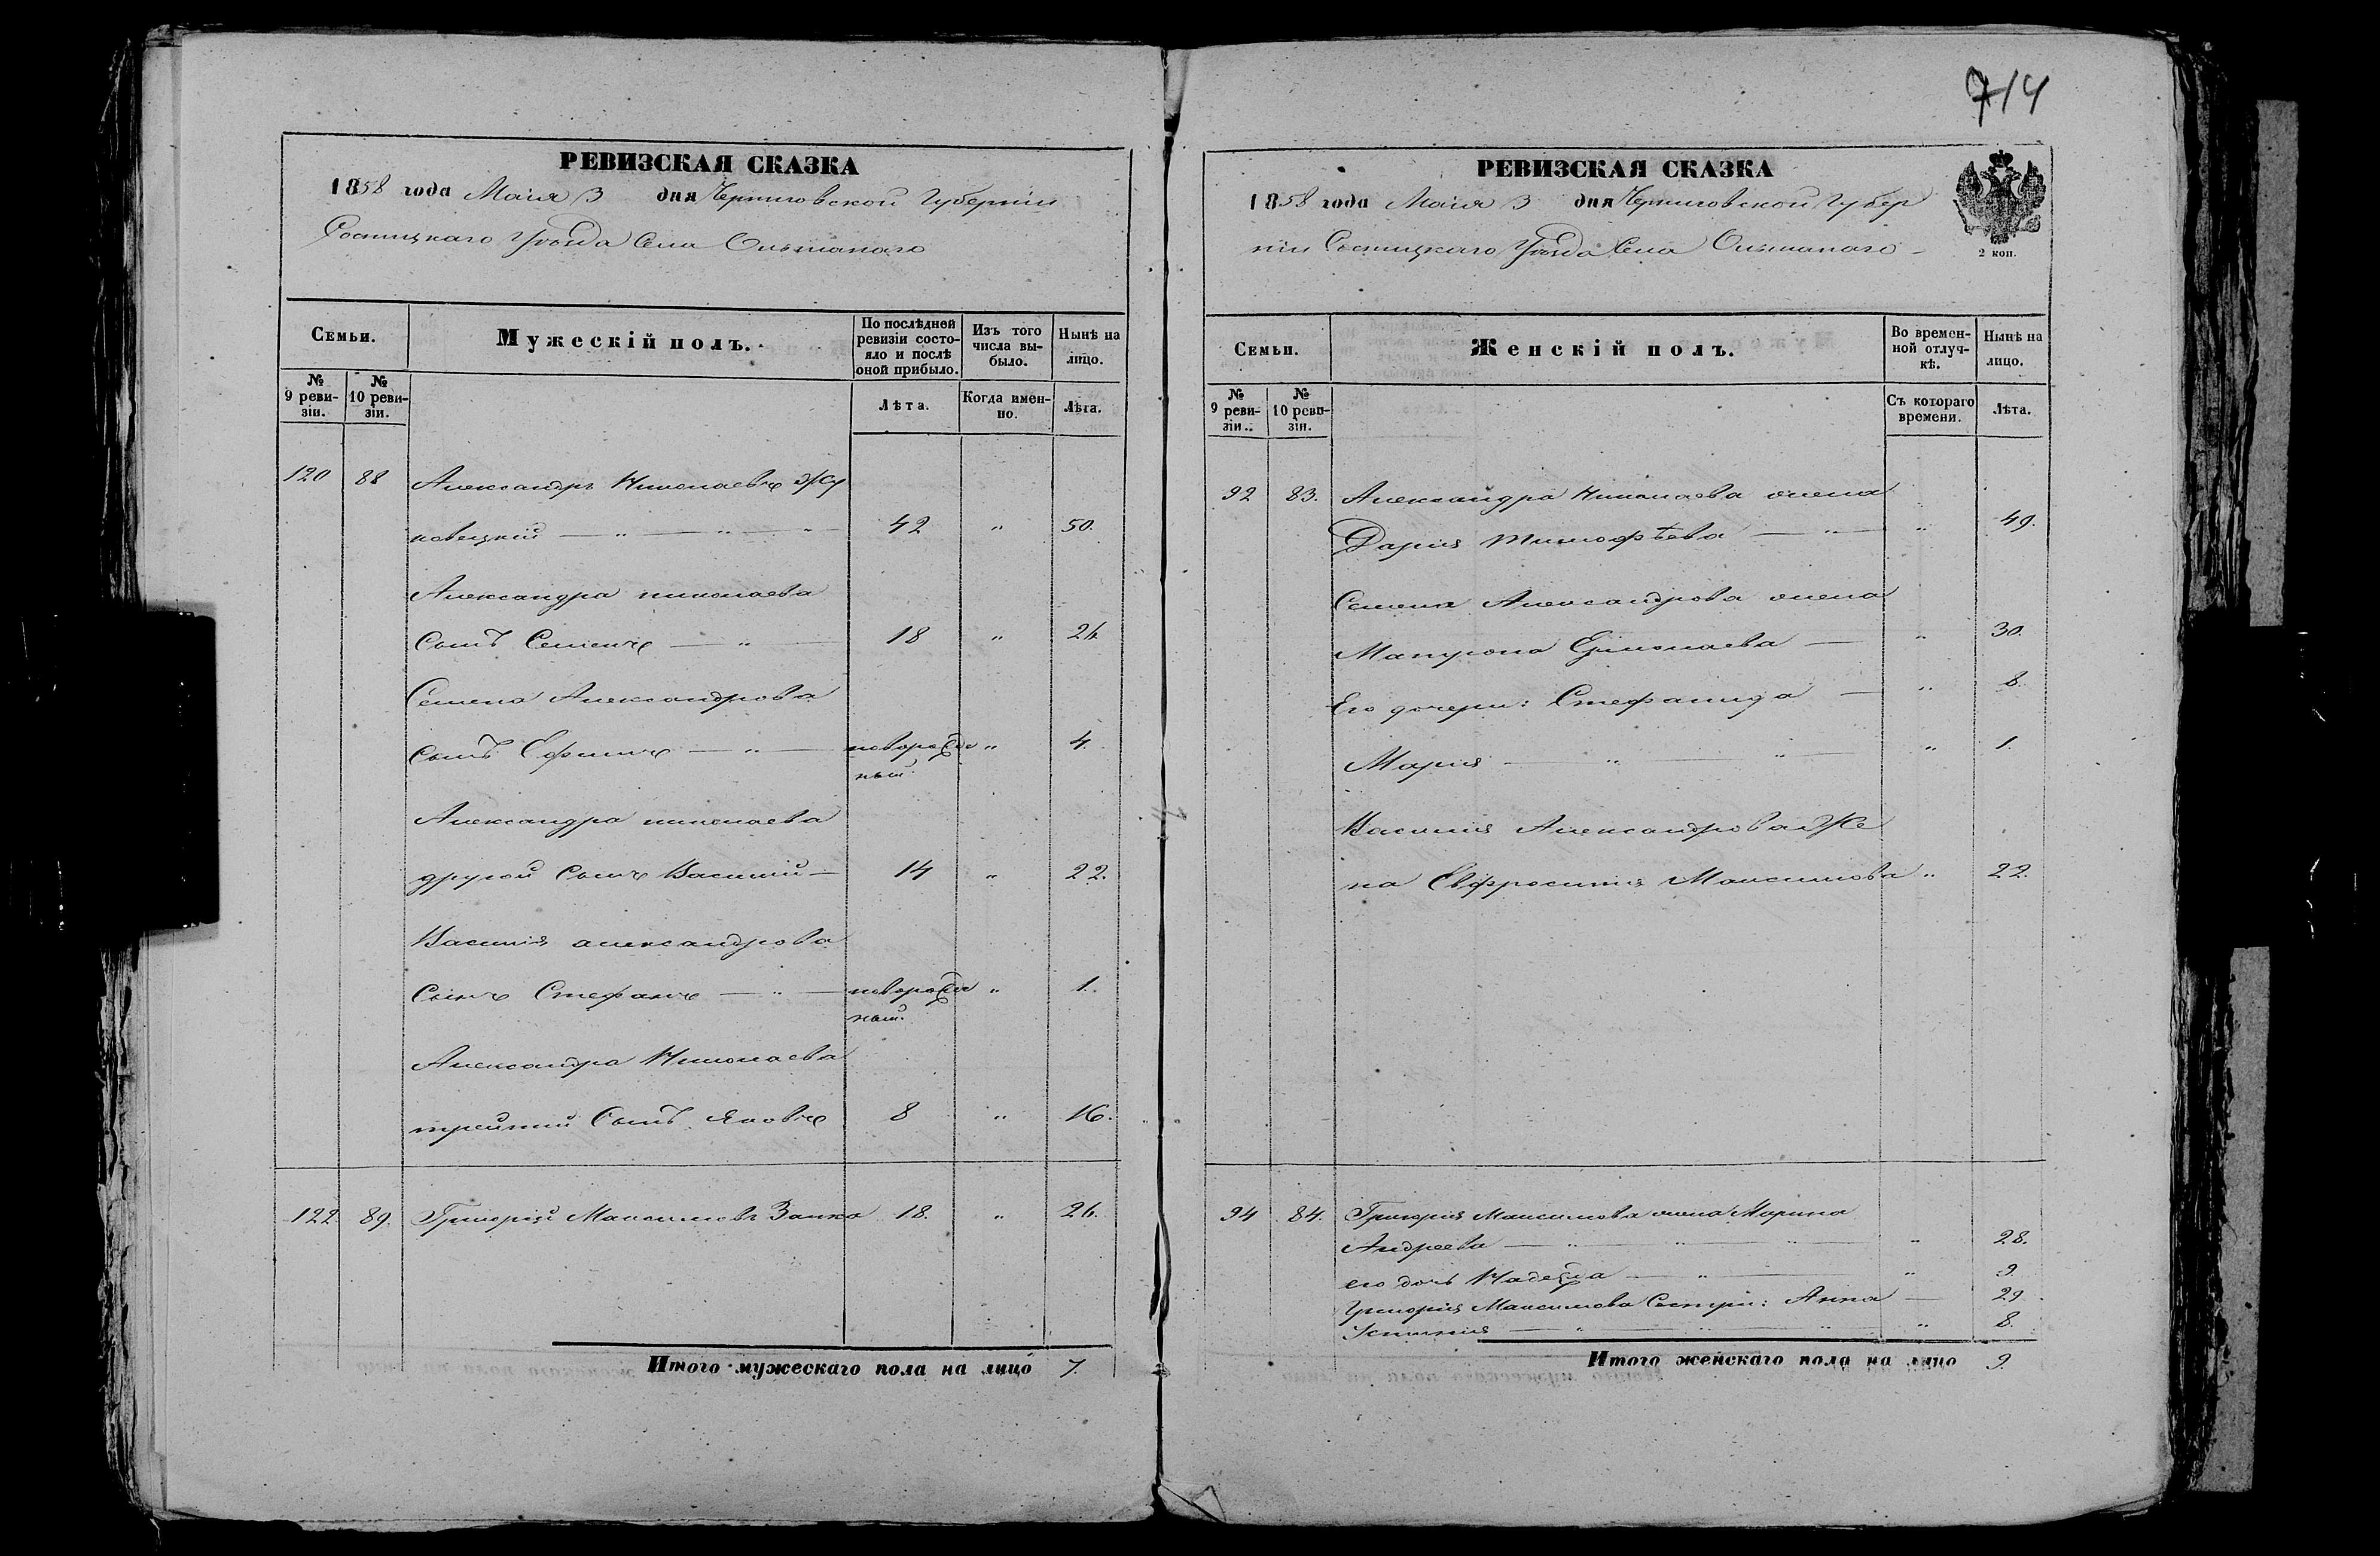 714
РЕВИЗСКАЯ СКАЗКА
1858 года Маія 3 дня Черниговской Губерніи
Сосницкаго Уѣзда Села Ольшанаго
Семьи.
Мужескій полъ.
По послѣдней ревизіи состояло и послѣ оной прибыло.
Изъ того числа выбыло.
Нынѣ на лицо.
№ 9 ревизіи.
№ 10 ревизіи.
Лѣта.
Когда именно.
Лѣта.
120 88 Александръ Николаевъ Жу
ковецкій — „ — „ — „ 42 „ 50.
Александра николаева
Сынъ Семенъ — „ — 18 „ 26
Семена Александрова
Сынъ Ефимъ — „ — новорожде „ 4.
ный.
Александра николаева
другой Сынъ Василій — 14 „ 22.
Василія александрова
Сынъ Стефанъ — „ — новорожде „ 1.
ный.
Александра Николаева
третій Сынъ Яковъ 8 „ 16.
122 89. Григорій Максимовъ Заика 18. „ 26.
Итого мужескаго пола на лицо 7.
РЕВИЗСКАЯ СКАЗКА
1858 года Маія 3 дня Черниговской Губер
ніи Сосницкаго Уѣзда Села Ольшанаго —
2 коп.
Семьи.
Женскій полъ.
Во временной отлучкѣ.
Нынѣ на лицо.
№ 9 ревизіи.
№ 10 ревизіи.
Съ котораго времени.
Лѣта.
92 83. Александра Николаева жена
Дарія Тимофѣева — „ — „ 49.
Семена Александрова жена
Матрона — „ 30.
Его дочери: Стефанида — „ 8.
Марія — „ — „ — „ 1.
Василія Александрова Же
на Евфросинія Максимова „ 22.
94 84. Григорія Максимова жена Марина
Андреева — „ — „ — „ — „ 28.
его дочь Надежда — „ — „ 9.
Григорія Максимова Сестры: Анна — 29
Устинія — „ — „ — „ — „ 8.
Итого женскаго пола на лицо 9.